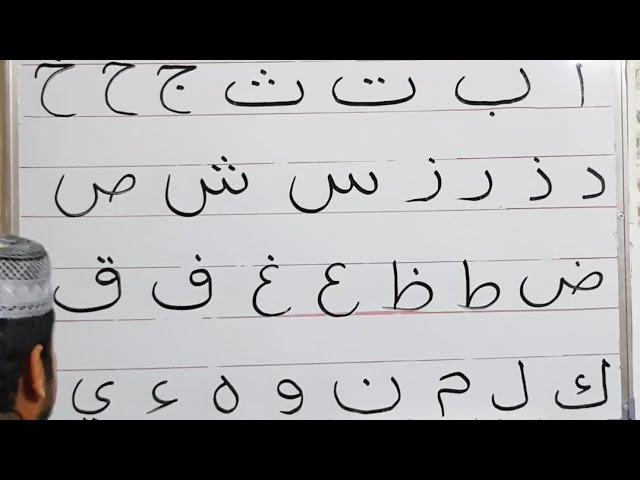 ا ب ت ث ج ح خ
د ذ ر ز س ش ص
ض ط ظ ع غ ف ق
ك ل م ن و ه ء ي